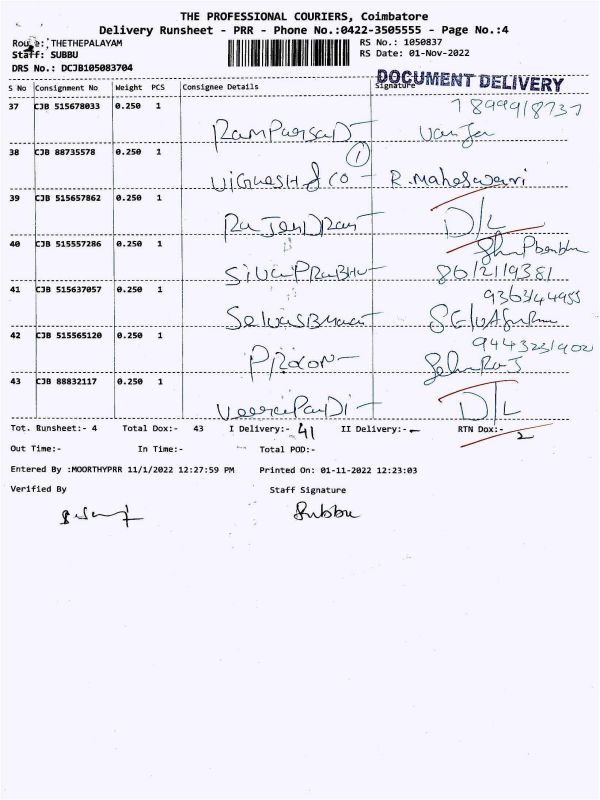 THE PROFESSIONAL COURIERS, Coimbatore
Delivery Runsheet - PRR - Phone No.:0422-3505555 - Page No.:4
Route: THETHEPALAYAM
RS No.: 1050837
Staff: SUBBU
RS Date: 01-Nov-2022
DRS No.: DCJB105083704
DOCUMENT DELIVERY
S No Consignment No Weight PCS Consignee Details Signature
37 CJB 515678033 0.250 1
38 CJB 88735578 0.250 1
VIGNESH & CO R. Maheswari
39 CJB 515657862 0.250 1
D/L
40 CJB 515557286 0.250 1
SIVAPRABHU
41 CJB 515637057 0.250 1
42 CJB 515565120 0.250 1
43 CJB 88832117 0.250 1
VeeraPanDi D/L
Tot. Runsheet:- 4 Total Dox:- 43 I Delivery:- 41 II Delivery:- - RTN Dox:- 2
Out Time:- In Time:- Total POD:-
Entered By :MOORTHYPRR 11/1/2022 12:27:59 PM Printed On: 01-11-2022 12:23:03
Verified By Staff Signature
Subbu